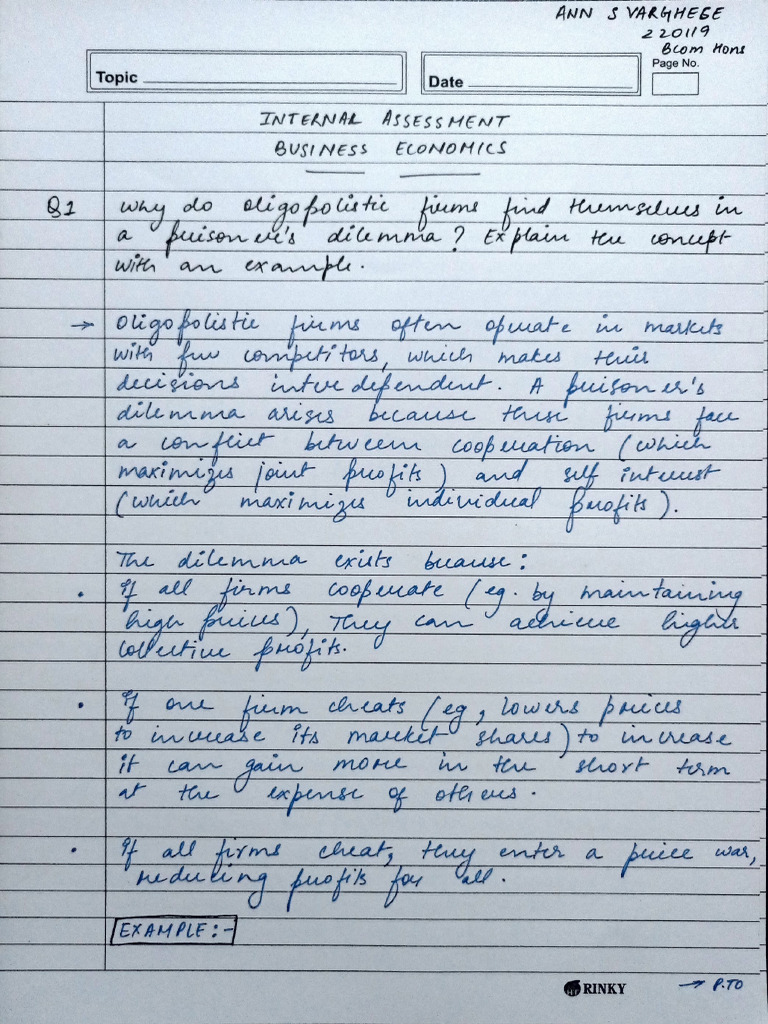 ANN S VARGHESE
220119
Bcom Hons
Page No.
Topic
Date
INTERNAL ASSESSMENT
BUSINESS ECONOMICS
Q1 Why do oligopolistic firms find themselves in
a prisoner's dilemma? Explain the concept
with an example.
→ Oligopolistic firms often operate in markets
with few competitors, which makes their
decisions interdependent. A prisoner's
dilemma arises because these firms face
a conflict between cooperation (which
maximizes joint profits) and self interest
(which maximizes individual profits).
The dilemma exists because:
• If all firms cooperate (eg. by maintaining
high prices), They can achieve higher
collective profits.
• If one firm cheats (eg, lowers prices
to increase its market shares) to increase
it can gain more in the short term
at the expense of others.
• If all firms cheat, they enter a price war,
reducing profits for all.
EXAMPLE:-
RINKY
→ P.TO